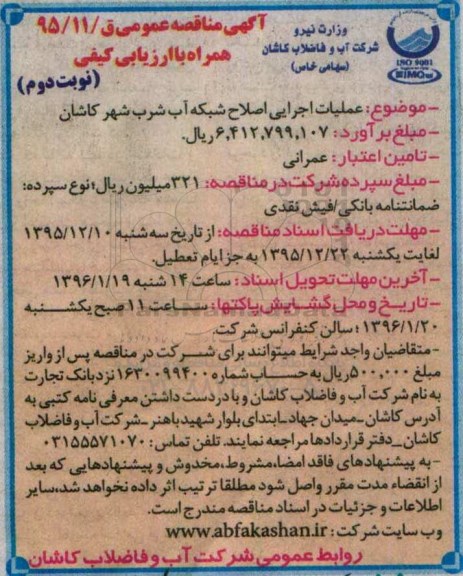 آگهی مناقصه عمومی ق/۹۵/۱۱
همراه با ارزیابی کیفی
(نوبت دوم)
وزارت نیرو
شرکت آب و فاضلاب کاشان
(سهامی خاص)
ISO 9001
IMQ
- موضوع: عملیات اجرایی اصلاح شبکه آب شرب شهر کاشان
- مبلغ برآورد: ۶,۴۱۲,۷۹۹,۱۰۷ ریال.
- تامین اعتبار: عمرانی
- مبلغ سپرده شرکت در مناقصه: ۳۲۱ میلیون ریال؛ نوع سپرده:
ضمانتنامه بانکی/فیش نقدی
- مهلت دریافت اسناد مناقصه: از تاریخ سه شنبه ۱۳۹۵/۱۲/۱۰
لغایت یکشنبه ۱۳۹۵/۱۲/۲۲ به جز ایام تعطیل.
- آخرین مهلت تحویل اسناد: ساعت ۱۴ شنبه ۱۳۹۶/۱/۱۹
- تاریخ و محل گشایش پاکتها: ساعت ۱۱ صبح یکشنبه
۱۳۹۶/۱/۲۰؛ سالن کنفرانس شرکت.
- متقاضیان واجد شرایط میتوانند برای شرکت در مناقصه پس از واریز
مبلغ ۵۰۰,۰۰۰ ریال به حساب شماره ۱۶۳۰۰۹۹۴۰۰ نزد بانک تجارت
به نام شرکت آب و فاضلاب کاشان و با در دست داشتن معرفی نامه کتبی به
آدرس کاشان_میدان جهاد_ابتدای بلوار شهید باهنر_شرکت آب و فاضلاب
کاشان_دفتر قراردادها مراجعه نمایند. تلفن تماس: ۰۳۱۵۵۵۷۱۰۷۰
- به پیشنهادهای فاقد امضا، مشروط، مخدوش و پیشنهادهایی که بعد
از انقضاء مدت مقرر واصل شود مطلقا ترتیب اثر داده نخواهد شد، سایر
اطلاعات و جزئیات در اسناد مناقصه مندرج است.
وب سایت شرکت: www.abfakashan.ir
روابط عمومی شرکت آب و فاضلاب کاشان